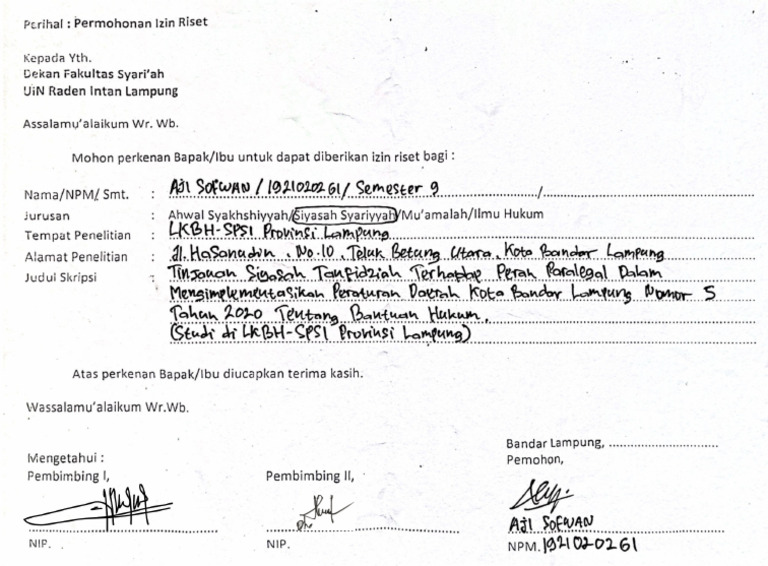 Perihal : Permohonan Izin Riset
Kepada Yth.
Dekan Fakultas Syari'ah
UiN Raden Intan Lampung
Assalamu'alaikum Wr. Wb.
Mohon perkenan Bapak/Ibu untuk dapat diberikan izin riset bagi :
Nama/NPM/ Smt. : AJI SOFWAN / 1921020261 / Semester 9 /
Jurusan : Ahwal Syakhshiyyah/Siyasah Syariyyah/Mu'amalah/Ilmu Hukum
Tempat Penelitian : LKBH-SPSI Provinsi Lampung
Alamat Penelitian : Jl. Hasanudin, No.10, Teluk Betung Utara, Kota Bandar Lampung
Judul Skripsi : Tinjauan Siyasah Tanfidziah Terhadap Peran Paralegal Dalam
Mengimplementasikan Peraturan Daerah Kota Bandar Lampung Nomor 5
Tahun 2020 Tentang Bantuan Hukum.
(Studi di LKBH-SPSI Provinsi Lampung)
Atas perkenan Bapak/Ibu diucapkan terima kasih.
Wassalamu'alaikum Wr.Wb.
Bandar Lampung, ............................
Mengetahui :
Pemohon,
Pembimbing I, Pembimbing II,
AJI SOFWAN
NIP. NIP. NPM. 1921020261